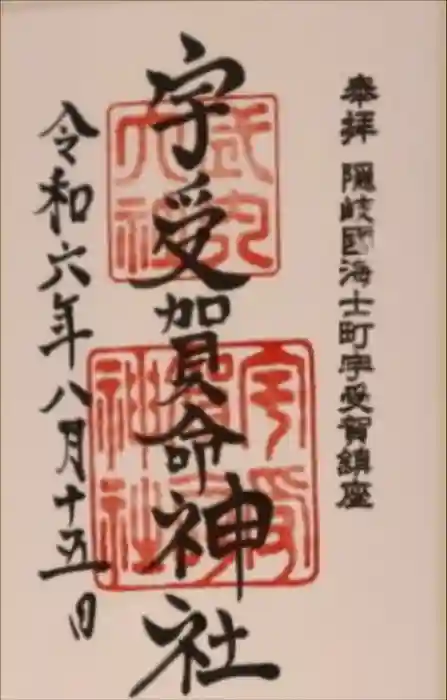 奉拝 隠岐國海士町宇受賀鎮座
宇受賀命神社
式内大社
宇受賀命神社
令和六年八月十五日